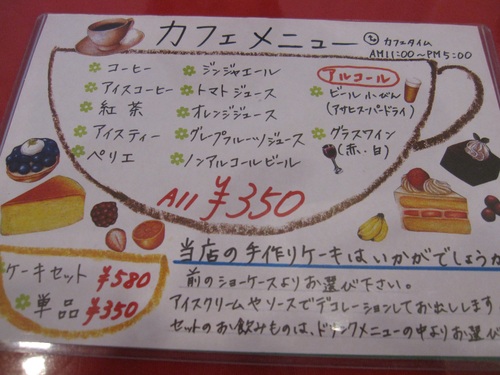 カフェメニュー
カフェタイム
AM11:00～PM5:00
コーヒー
アイスコーヒー
紅茶
アイスティー
ペリエ
ジンジャエール
トマトジュース
オレンジジュース
グレプフルーツジュース
ノンアルコールビール
アルコール
ビール小びん
(アサヒスーパードライ)
グラスワイン
(赤・白)
All ¥350
ケーキセット ¥580
単品 ¥350
当店の手作りケーキはいかがでしょうか
前のショーケースよりお選び下さい。
アイスクリームやソースでデコレーションしてお出しします
セットのお飲みものは、ドリンクメニューの中よりお選び